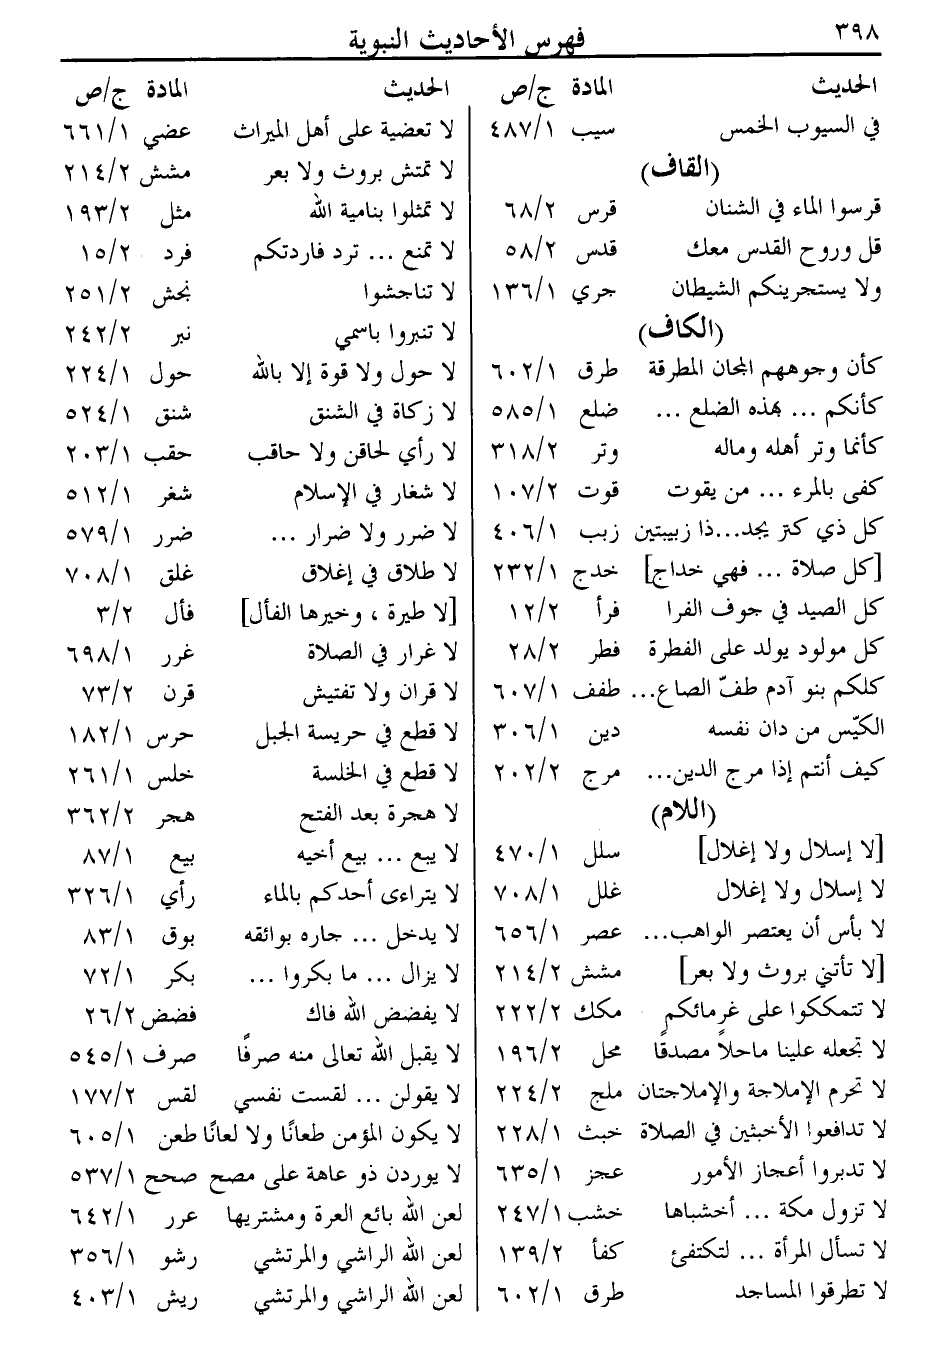 ٣٩٨
فهرس الأحاديث النبوية
الحديث المادة ج/ص
في السيوب الخمس سيب ٤٨٧/١
(القاف)
قرسوا الماء في الشنان قرس ٦٨/٢
قل وروح القدس معك قدس ٥٨/٢
ولا يستجرينكم الشيطان جري ١٣٦/١
(الكاف)
كأن وجوههم المجان المطرقة طرق ٦٠٢/١
كأنكم ... بهذه الضلع ... ضلع ٥٨٥/١
كأنما وتر أهله وماله وتر ٣١٨/٢
كفى بالمرء ... من يقوت قوت ١٠٧/٢
كل ذي كنز يجد...ذا زبيبتين زبب ٤٠٦/١
[كل صلاة ... فهي خداج] خدج ٢٣٢/١
كل الصيد في جوف الفرا فرأ ١٢/٢
كل مولود يولد على الفطرة فطر ٢٨/٢
كلكم بنو آدم طفّ الصاع... طفف ٦٠٧/١
الكيّس من دان نفسه دين ٣٠٦/١
كيف أنتم إذا مرج الدين... مرج ٢٠٢/٢
(اللام)
[لا إسلال ولا إغلال] سلل ٤٧٠/١
لا إسلال ولا إغلال غلل ٧٠٨/١
لا بأس أن يعتصر الواهب... عصر ٦٥٦/١
[لا تأتني بروث ولا بعر] مشش ٢١٤/٢
لا تتمككوا على غرمائكم مكك ٢٢٢/٢
لا تجعله علينا ماحلاً مصدقًا محل ١٩٦/٢
لا تحرم الإملاجة والإملاجتان ملج ٢٢٤/٢
لا تدافعوا الأخبثين في الصلاة خبث ٢٢٨/١
لا تدبروا أعجاز الأمور عجز ٦٣٥/١
لا تزول مكة ... أخشباها خشب ٢٤٧/١
لا تسأل المرأة ... لتكتفئ كفأ ١٣٩/٢
لا تطرقوا المساجد طرق ٦٠٢/١
الحديث المادة ج/ص
لا تعضية على أهل الميراث عضي ٦٦١/١
لا تمتش بروث ولا بعر مشش ٢١٤/٢
لا تمثلوا بنامية الله مثل ١٩٣/٢
لا تمنع ... ترد فاردتكم فرد ١٥/٢
لا تناجشوا نجش ٢٥١/٢
لا تنبروا باسمي نبر ٢٤٢/٢
لا حول ولا قوة إلا بالله حول ٢٢٤/١
لا زكاة في الشنق شنق ٥٢٤/١
لا رأي لحاقن ولا حاقب حقب ٢٠٣/١
لا شغار في الإسلام شغر ٥١٢/١
لا ضرر ولا ضرار ... ضرر ٥٧٩/١
لا طلاق في إغلاق غلق ٧٠٨/١
[لا طيرة ، وخيرها الفأل] فأل ٣/٢
لا غرار في الصلاة غرر ٦٩٨/١
لا قران ولا تفتيش قرن ٧٣/٢
لا قطع في حريسة الجبل حرس ١٨٢/١
لا قطع في الخلسة خلس ٢٦١/١
لا هجرة بعد الفتح هجر ٣٦٢/٢
لا يبع ... بيع أخيه بيع ٨٧/١
لا يتراءى أحدكم بالماء رأي ٣٢٦/١
لا يدخل ... جاره بوائقه بوق ٨٣/١
لا يزال ... ما بكروا ... بكر ٧٢/١
لا يفضض الله فاك فضض ٢٦/٢
لا يقبل الله تعالى منه صرفًا صرف ٥٤٥/١
لا يقولن ... لقست نفسي لقس ١٧٧/٢
لا يكون المؤمن طعانًا ولا لعانًا طعن ٦٠٥/١
لا يوردن ذو عاهة على مصح صحح ٥٣٧/١
لعن الله بائع العرة ومشتريها عرر ٦٤٢/١
لعن الله الراشي والمرتشي رشو ٣٥٦/١
لعن الله الراشي والمرتشي ريش ٤٠٣/١